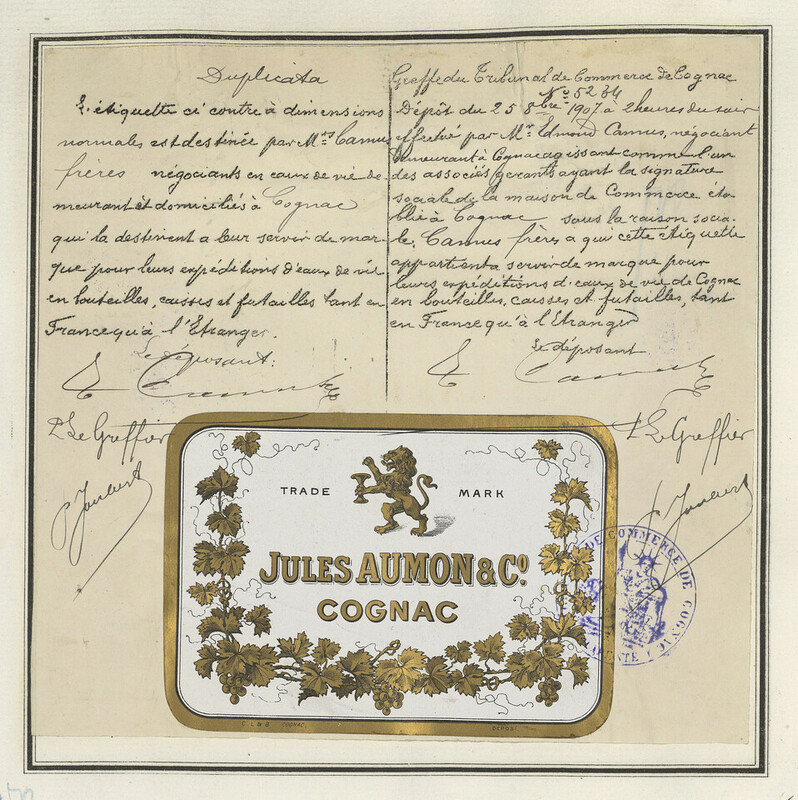 Duplicata
L'étiquette ci contre à dimensions
normales est destinée par Mrs Camus
frères négociants en eaux de vie de-
meurant et domiciliés à Cognac
qui la destinent a leur servir de mar-
que pour leurs expéditions d'eaux de vie
en bouteilles, caisses et futailles tant en
France qu'à l'Etranger.
Le déposant:
P. Le Greffier
Greffe du Tribunal de Commerce de Cognac
No 5234
Dépôt du 25 8bre 1907 à 2 heures du soir
effectué par Mr Edmond Camus, négociant
demeurant à Cognac agissant comme l'un
des associés gerants ayant la signature
sociale de la maison de Commerce éta-
blie à Cognac sous la raison socia-
le, Camus frères a qui cette étiquette
appartient a servir de marque pour
leurs expéditions d'eaux de vie de Cognac
en bouteilles, caisses et futailles, tant
en France qu'à l'Etranger
Le déposant
P. Le Greffier
TRADE MARK
JULES AUMON & Co.
COGNAC
COGNAC.
DÉPOSÉ
DE COMMERCE DE COGNAC